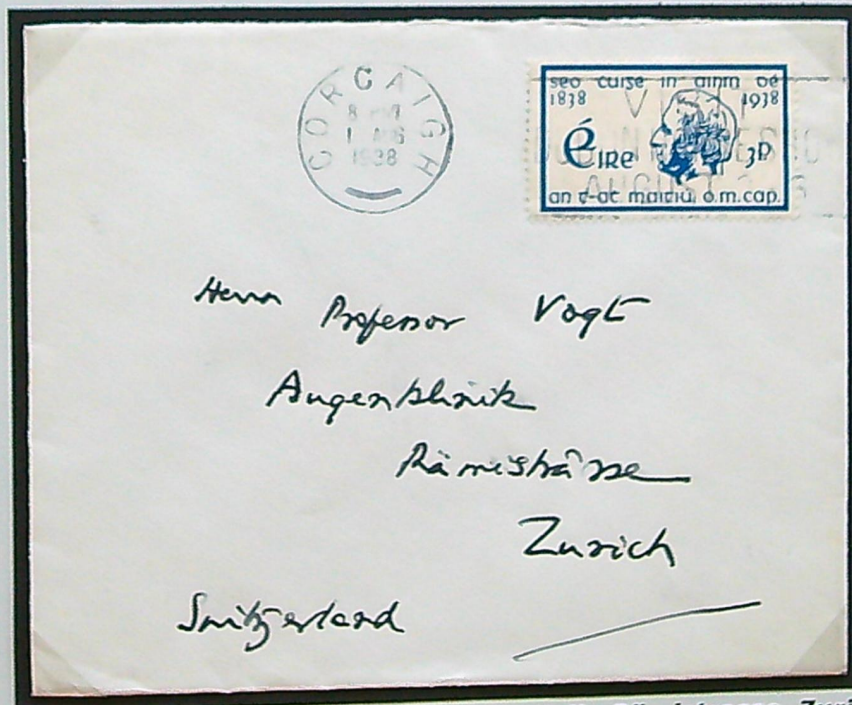 CORCAIGH
8 PM
1 AUG
1938
seo cuirse in ainm dé
1838 1938
Éire 3p
an t-at. maitiú, o.m.cap.
VISIT
AUGUST
Herrn Professor Vogt
Augenklinik
Rämistrasse
Zurich
Switzerland